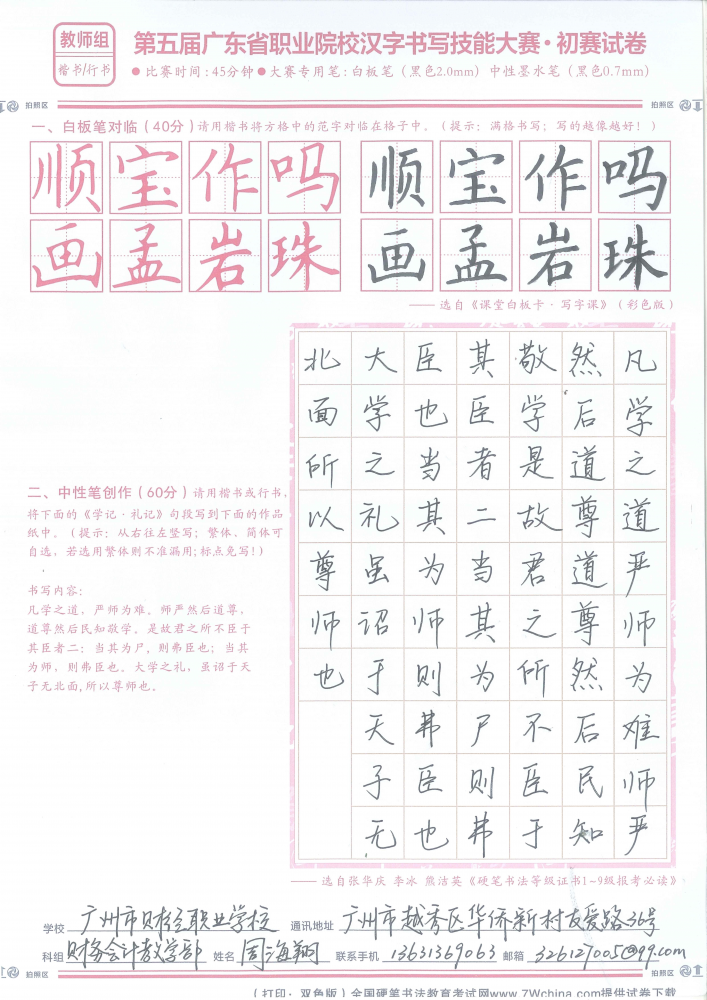 教师组
楷书/行书
第五届广东省职业院校汉字书写技能大赛·初赛试卷
●比赛时间:45分钟●大赛专用笔:白板笔(黑色2.0mm)中性墨水笔(黑色0.7mm)
拍照区
拍照区
一、白板笔对临(40分)请用楷书将方格中的范字对临在格子中。(提示:满格书写;写的越像越好!)
顺宝作吗 顺宝作吗
画孟岩珠 画孟岩珠
——选自《课堂白板卡·写字课》(彩色版)
二、中性笔创作(60分)请用楷书或行书,
将下面的《学记·礼记》句段写到下面的作品
纸中。(提示:从右往左竖写;繁体、简体可
自选,若选用繁体则不准漏用;标点免写!)
书写内容:
凡学之道,严师为难。师严然后道尊,
道尊然后民知敬学。是故君之所不臣于
其臣者二:当其为尸,则弗臣也;当其
为师,则弗臣也。大学之礼,虽诏于天
子无北面,所以尊师也。
凡学之道严师为难师严
然后道尊道尊然后民知
敬学是故君之所不臣于
其臣者二当其为尸则弗
臣也当其为师则弗臣也
大学之礼虽诏于天子无
北面所以尊师也
——选自张华庆 李冰 熊洁英《硬笔书法等级证书1~9级报考必读》
学校 广州市财经职业学校 通讯地址 广州市越秀区华侨新村友爱路36号
科组 财务会计教学部 姓名 周海翔 联系手机 13631369063 邮箱 326127005@qq.com
拍照区
拍照区
(打印:双色版)全国硬笔书法教育考试网www.7Wchina.com提供试卷下载